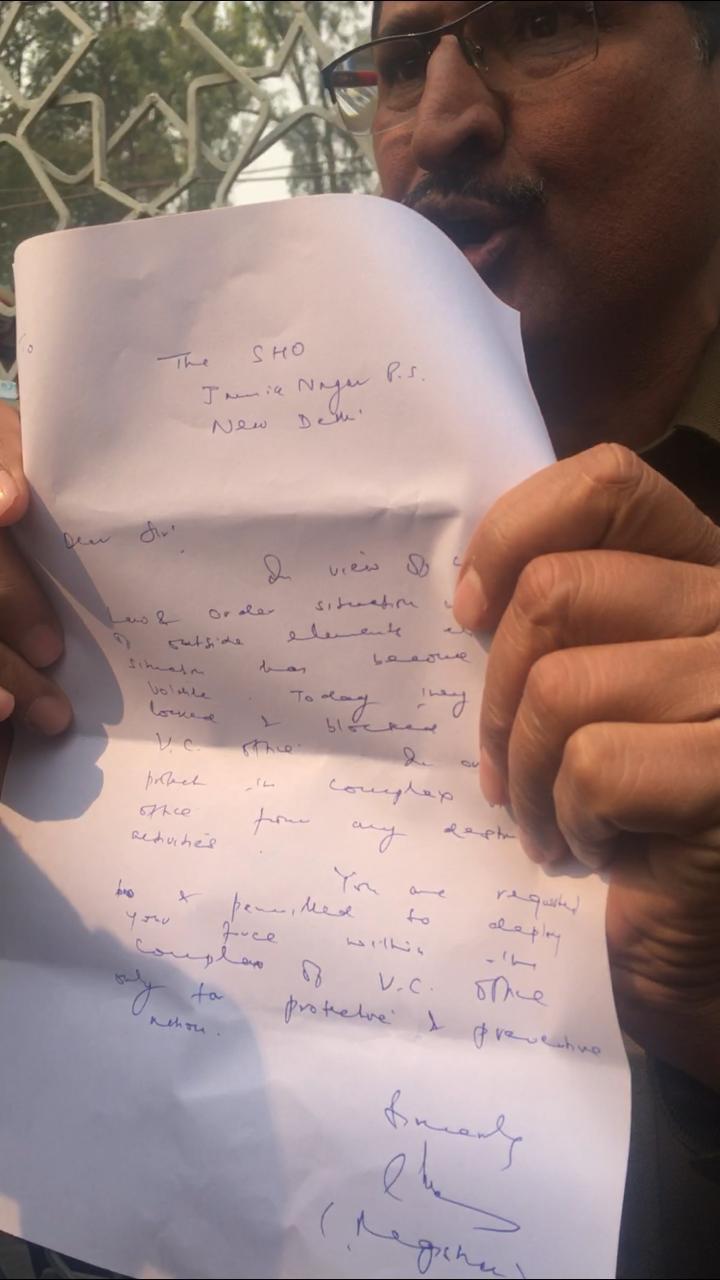 To
The SHO
Jamia Nagar P.S.
New Delhi
Dear Sir,
In view of
Law & order situation
of outside elements
situation has become
volatile. Today they
locked & blocked
V.C. office. In
protect the complex
office from any
activities.
You are requested
& permitted to deploy
your force within the
complex of V.C. office
only for protective & preventive
action.
Sincerely
(Registrar)